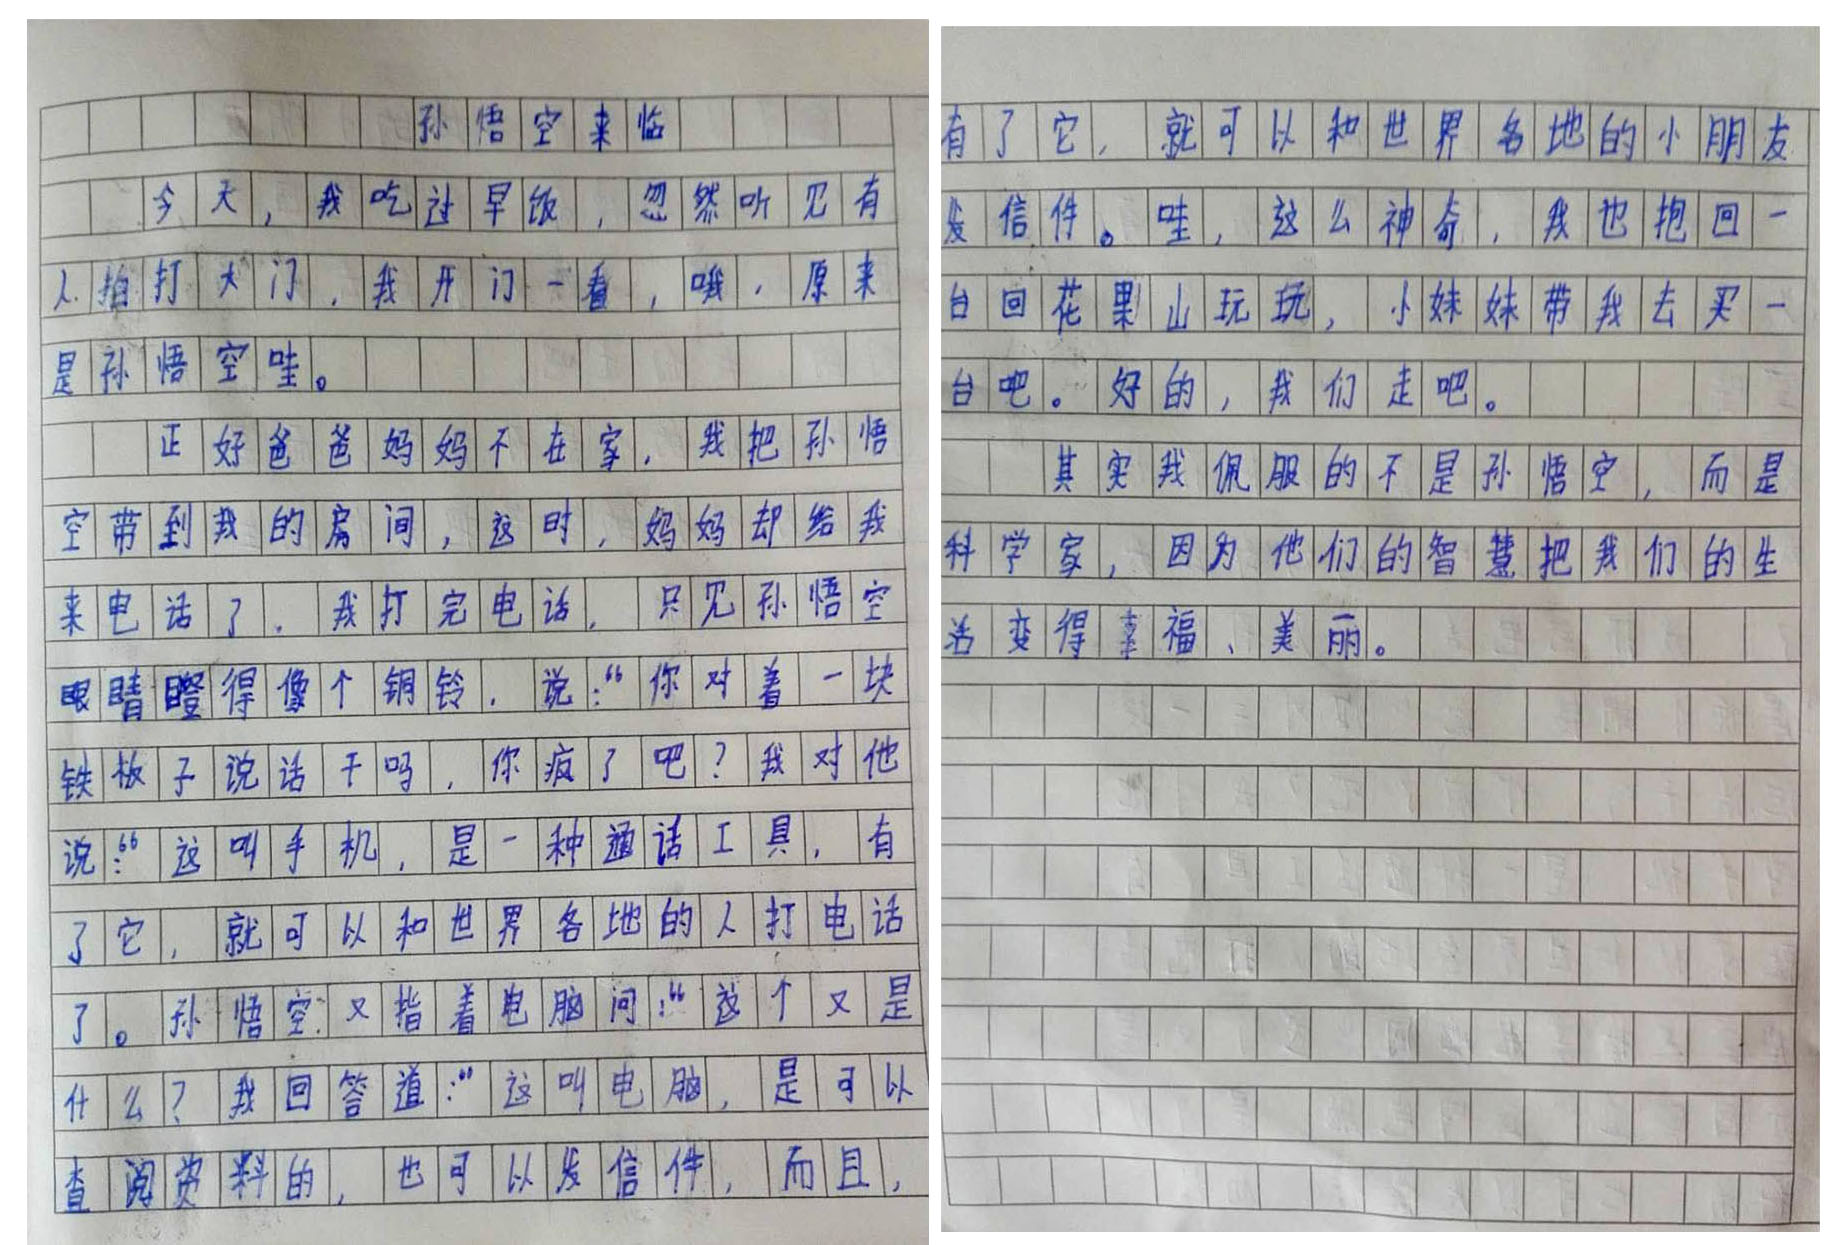 孙悟空来临
今天，我吃过早饭，忽然听见有
人拍打大门，我开门一看，哦，原来
是孙悟空哇。
正好爸爸妈妈不在家，我把孙悟
空带到我的房间，这时，妈妈却给我
来电话了，我打完电话，只见孙悟空
眼睛瞪得像个铜铃，说：“你对着一块
铁板子说话干吗，你疯了吧？我对他
说：“这叫手机，是一种通话工具，有
了它，就可以和世界各地的人打电话
了。孙悟空又指着电脑问：“这个又是
什么？我回答道：“这叫电脑，是可以
查阅资料的，也可以发信件，而且，
有了它，就可以和世界各地的小朋友
发信件。哇，这么神奇，我也抱回一
台回花果山玩玩，小妹妹带我去买一
台吧。好的，我们走吧。
其实我佩服的不是孙悟空，而是
科学家，因为他们的智慧把我们的生
活变得幸福、美丽。